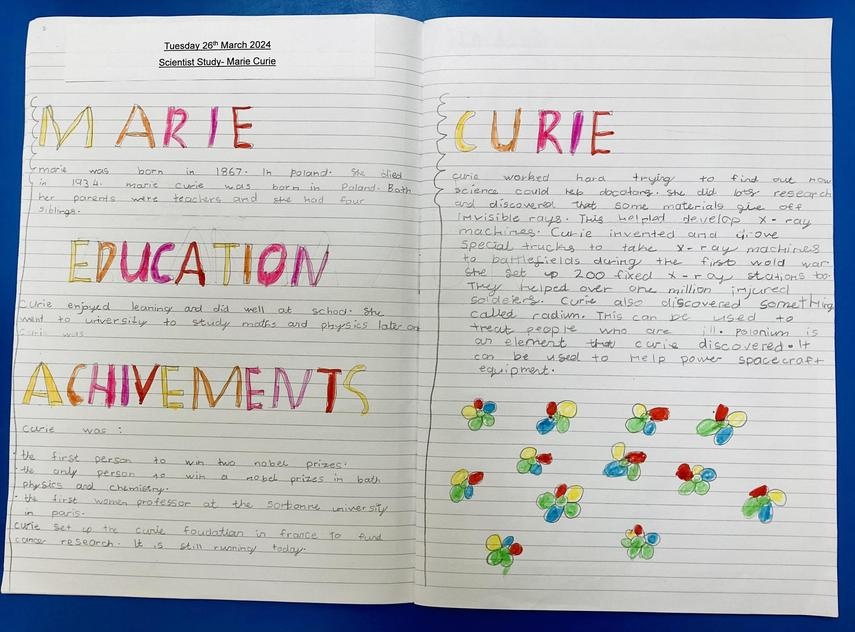 Tuesday 26th March 2024
Scientist Study- Marie Curie
MARIE
marie was born in 1867. In Poland. She died
in 1934. marie curie was born in Poland. Both
her parents were teachers and she had four
siblings.
EDUCATION
Curie enjoyed leaning and did well at school. She
went to university to study maths and physics later on
Curie was
ACHIVEMENTS
Curie was :
• the first person to win two nobel prizes.
• the only person to win a nobel prizes in both
physics and chemistry.
• the first women professor at the Sorbonne university
in paris.
Curie set up the curie foudation in france to fund
cancer research. It is still running today.
CURIE
curie worked hard trying to find out how
science could help docotors. She did lots research
and discovered that some materials give off
invisible rays. This helped develop x-ray
machines. Curie invented and drove
special trucks to take x-ray machines
to battlefields during the first wold war.
She set up 200 fixed x-ray stations to.
They helped over one million injured
soldeiers. Curie also discovered something
called radium. This can be used to
treat people who are ill. polonium is
an element that curie discovered. It
can be used to help power spacecraft
equipment.